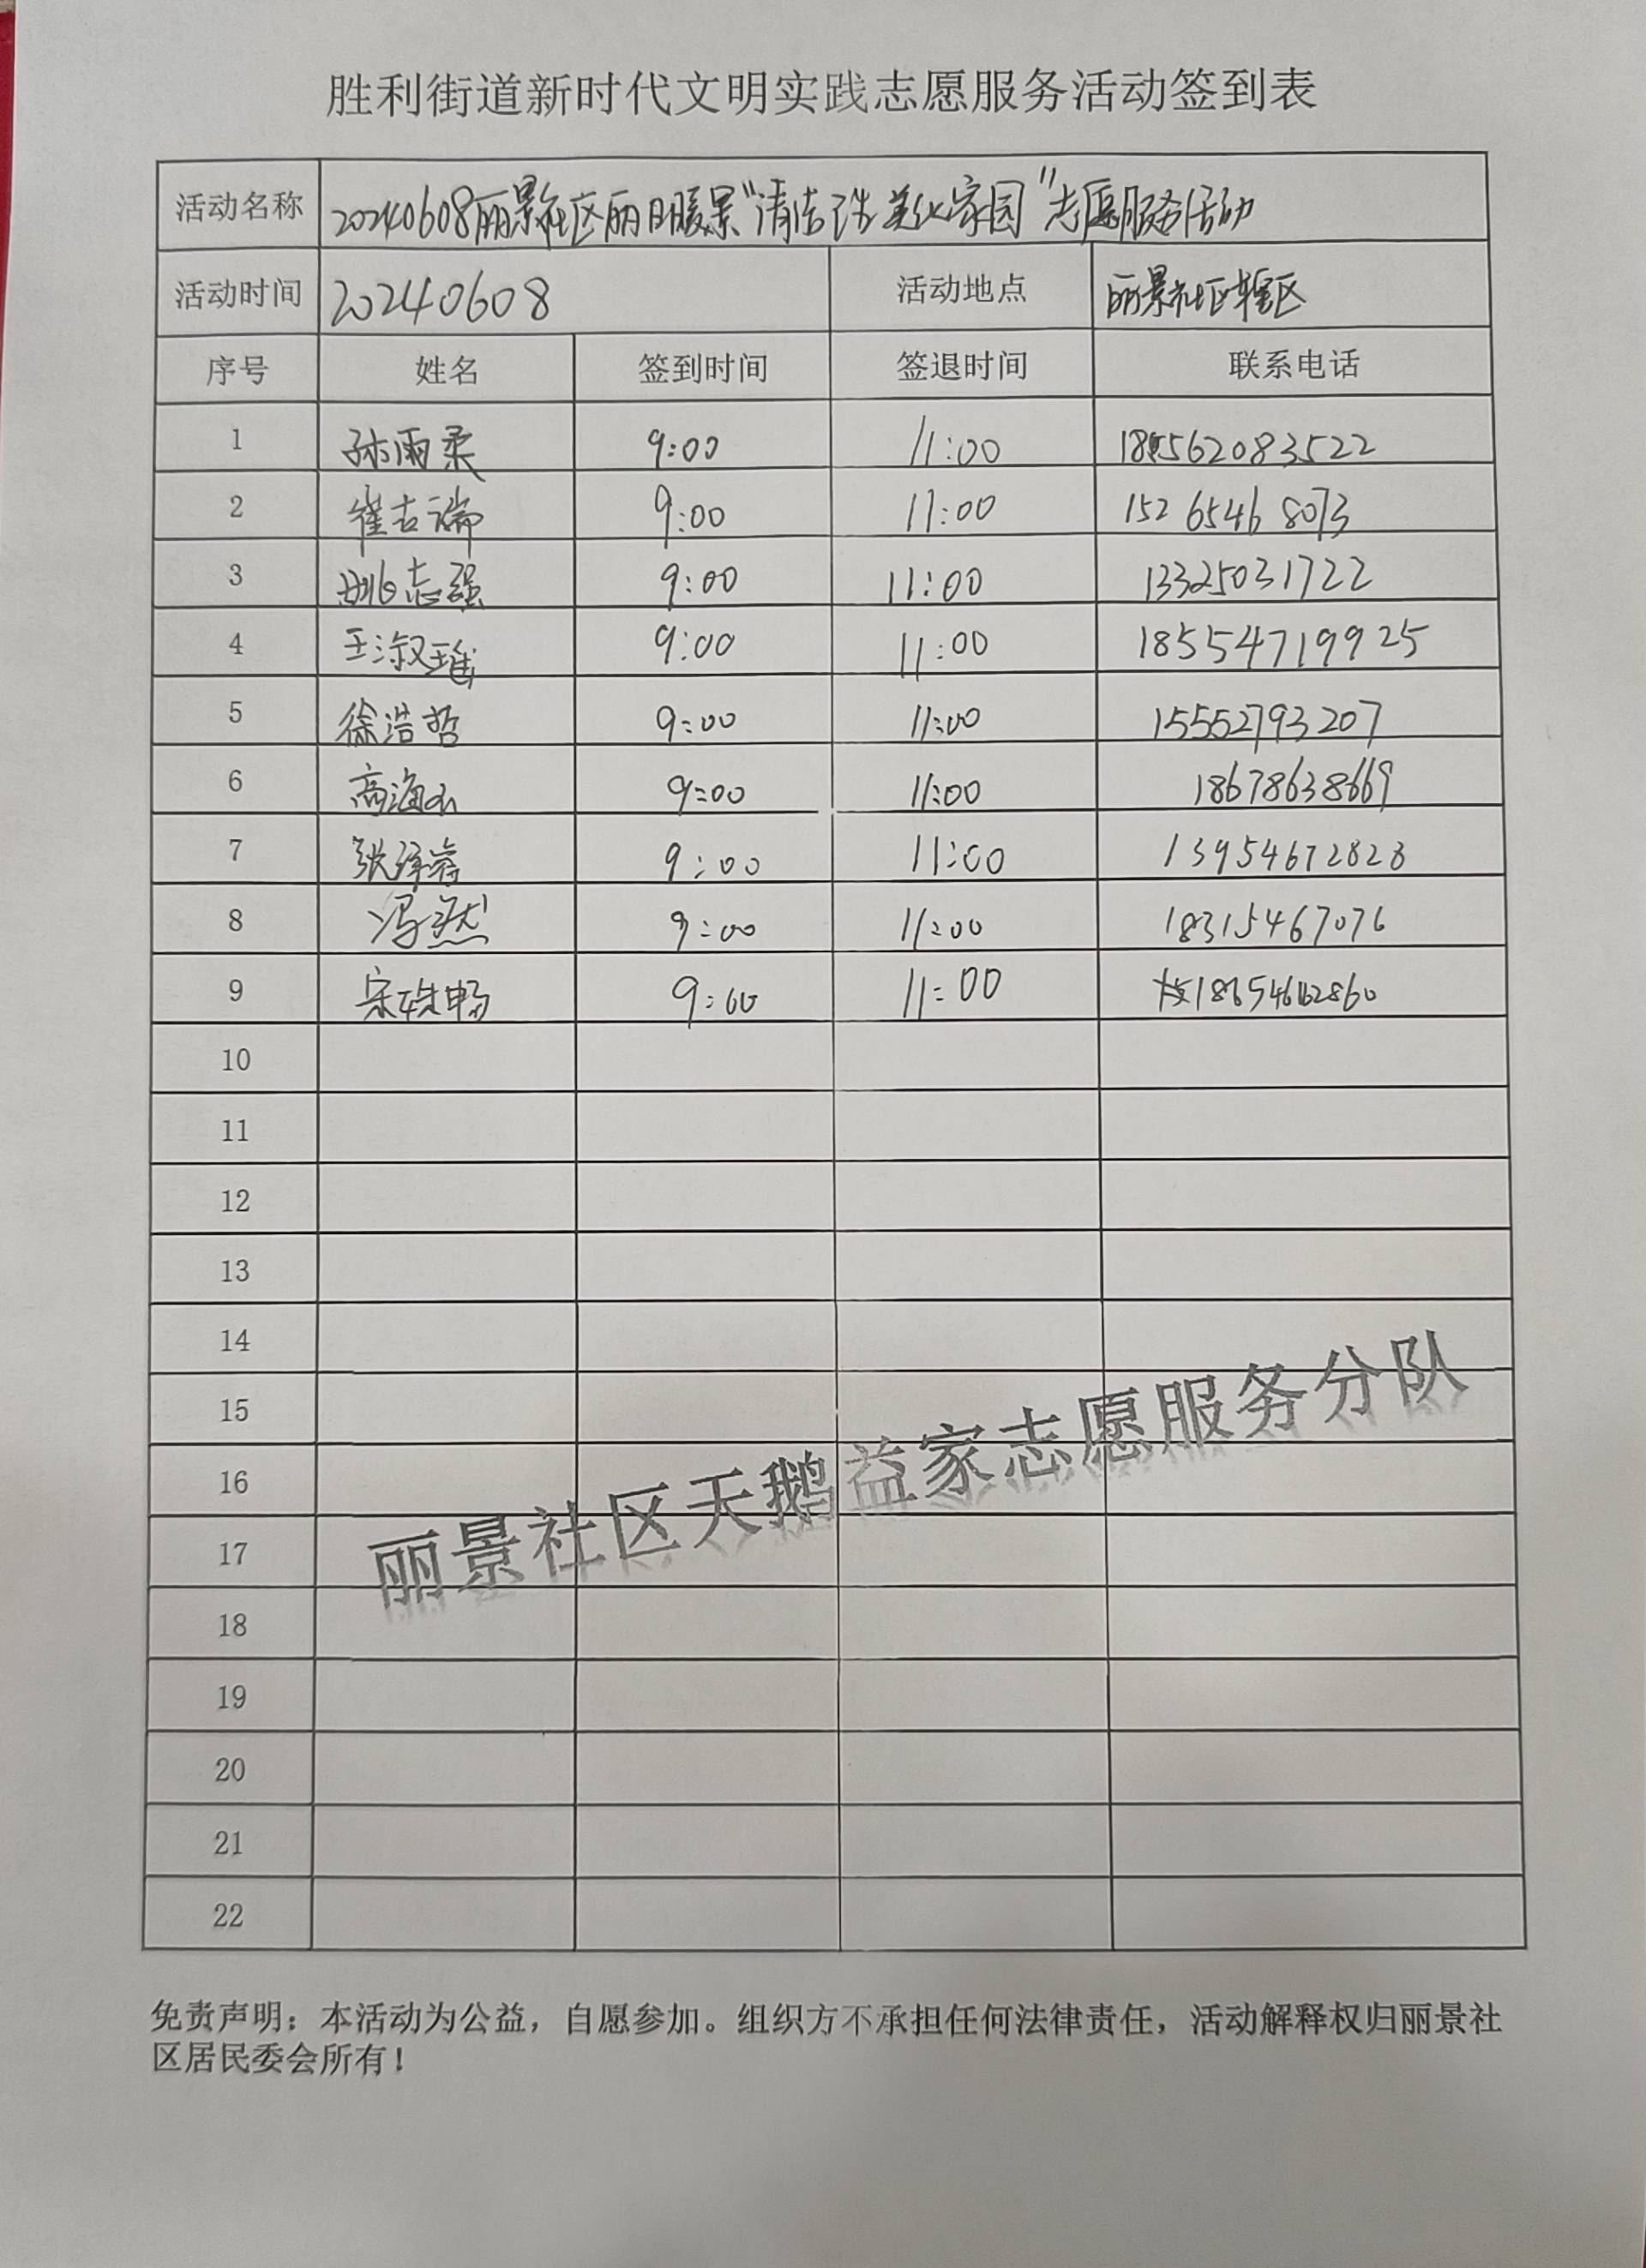 胜利街道新时代文明实践志愿服务活动签到表
活动名称 20240608丽景社区丽日暖景“清洁 美化家园”志愿服务活动
活动时间 20240608 活动地点 丽景社区辖区
序号 姓名 签到时间 签退时间 联系电话
1 孙雨柔 9:00 11:00
2 崔古瑞 9:00 11:00 152 6546 8073
3 姚志强 9:00 11:00 13325031722
4 王淑瑶 9:00 11:00 18554719925
5 徐浩哲 9:00 11:00 15552793207
6 9:00 11:00 18678638669
7 9:00 11:00 13954672828
8 冯然 9:00 11:00 18315467076
9 9:00 11:00
10
11
12
13
14
15
16
17
18
19
20
21
22
丽景社区天鹅益家志愿服务分队
免责声明：本活动为公益，自愿参加。组织方不承担任何法律责任，活动解释权归丽景社
区居民委会所有！